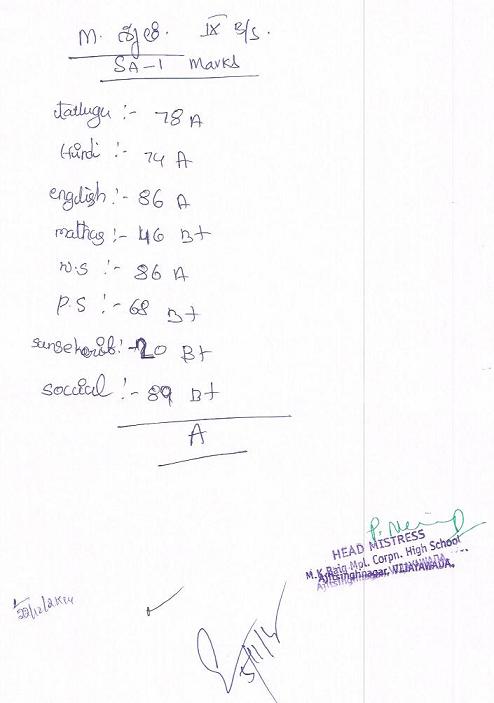 M. IX
SA-1 Marks
Tatlugu :- 78 A
Hindi :- 74 A
english :- 86 A
maths :- 46 B+
N.S :- 86 A
P.S :- 68 B+
:- 20 B+
soccial :- 89 B+
A
HEAD MISTRESS
M.K.Baig Mpl. Corpn. High School
Ajitsinghnagar, VIJAYAWADA.